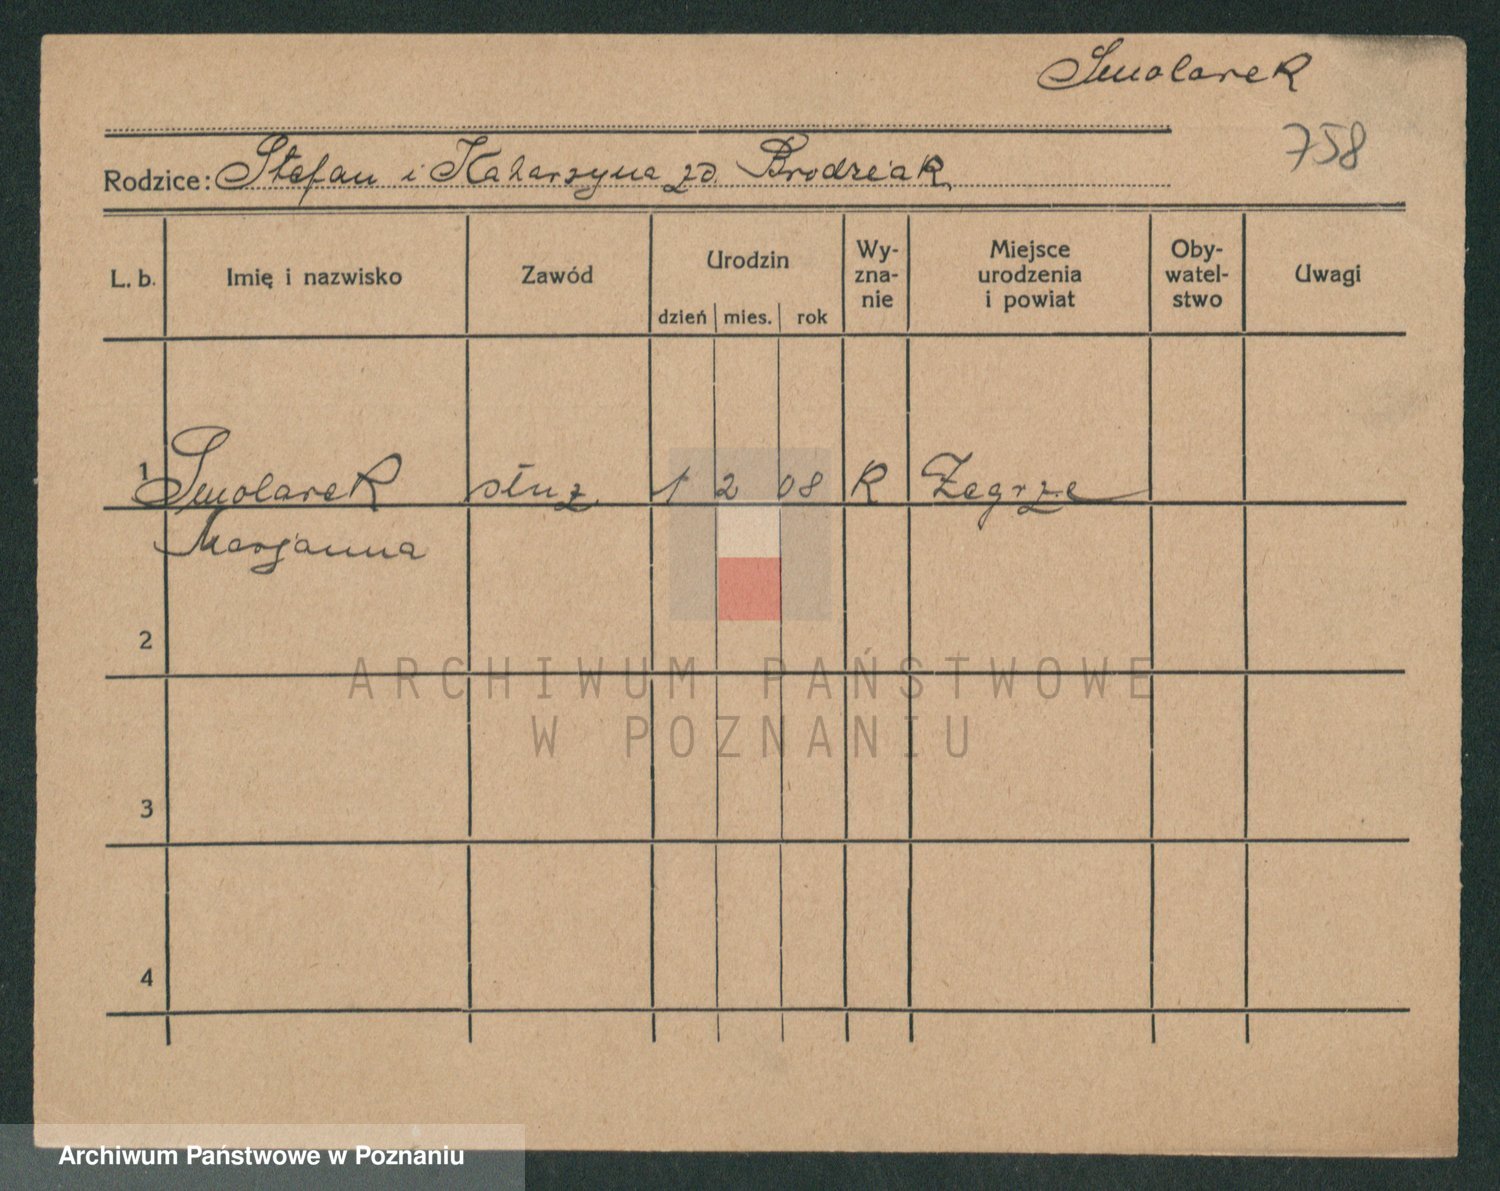 Smolarek
758
Rodzice: Stefan i Katarzyna zd. Brodziak
L. b.
Imię i nazwisko
Zawód
Urodzin
dzień mies. rok
Wy-
zna-
nie
Miejsce
urodzenia
i powiat
Oby-
watel-
stwo
Uwagi
1 Smolarek służ. 1 2 08 R Zegrze
Marjanna
2
3
4
ARCHIWUM PAŃSTWOWE
W POZNANIU
Archiwum Państwowe w Poznaniu